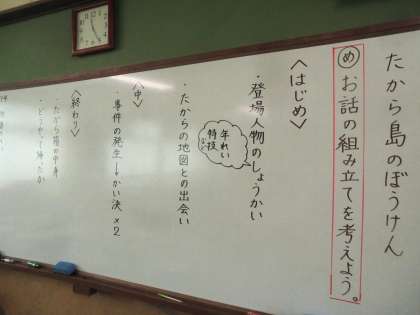 たから島のぼうけん
め お話の組み立てを考えよう。
〈はじめ〉
・登場人物のしょうかい
年れい
特技
・たからの地図との出会い
〈中〉
・事件の発生→かい決×2
〈終わり〉
・たから箱の中身
・どうやって帰ったか